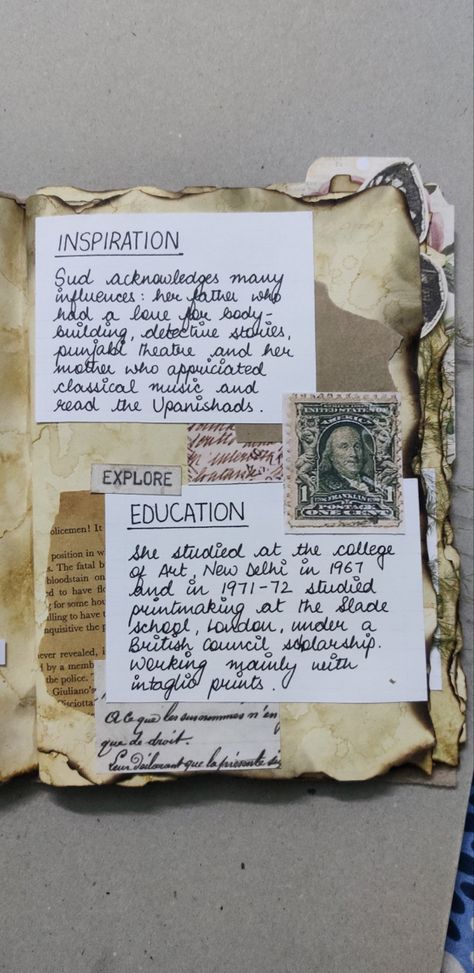 INSPIRATION
Sud acknowledges many
influences: her father who
had a love for body-
building, detective stories,
punjabi theatre and her
mother who appriciated
classical music and
read the Upanishads.
EXPLORE
UNITED STATES OF
AMERICA
1
FRANKLIN
1
POSTAGE
ONE CENT
EDUCATION
She studied at the college
of Art, New Delhi in 1967
and in 1971-72 studied
printmaking at the Slade
school, London, under a
British council ssolarship.
Working mainly with
intaglio prints.
olicemen! It
position in w
s. The fatal b
bloodstain on
d to have fl
g for some hou
lling to have t
nquisitive the p
ever revealed, i
d by a memb
the police. T
Giuliano's
Sciotta
A ce que les surnommés n'en
que de droit.
Leur déclarant que la présente